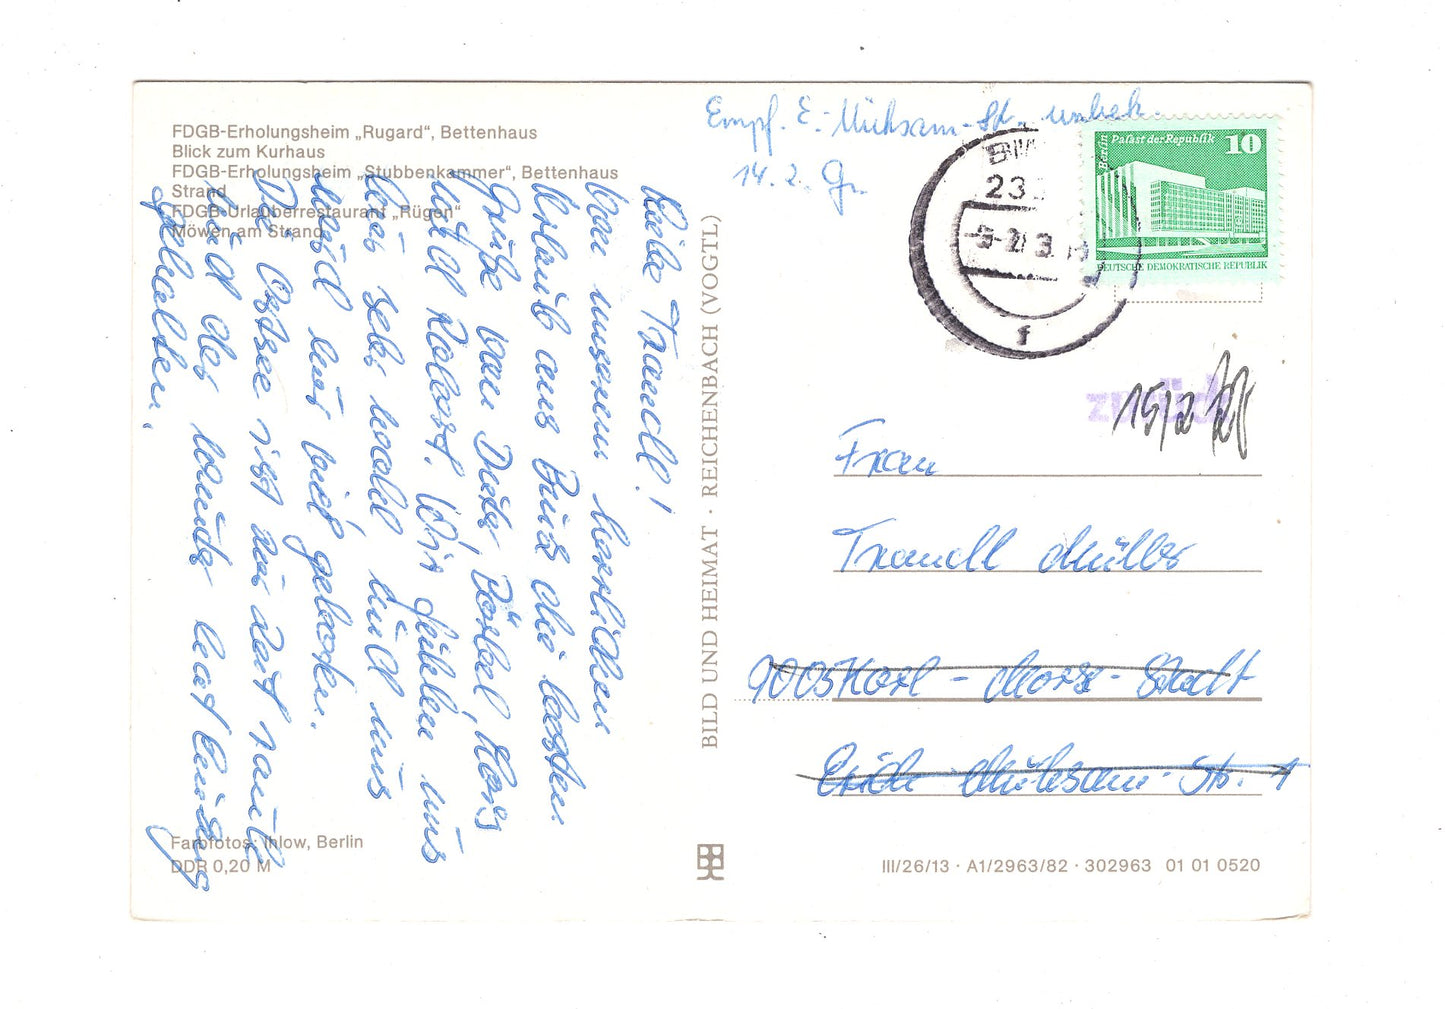 FDGB-Erholungsheim „Rugard“, Bettenhaus
Blick zum Kurhaus
FDGB-Erholungsheim „Stubbenkammer“, Bettenhaus
Strand
FDGB-Urlauberrestaurant „Rügen“
Möwen am Strand
Liebe Traudl!
Von unserem herrlichen
Urlaub aus Binz die besten
Grüße von Dieter, Bärbel,
und Robert. Wir fühlen uns
hier sehr wohl und uns
wird viel geboten.
Die Ostsee ist zur Zeit
und des
gehalten.
Farbfotos: Ihlow, Berlin
DDR 0,20 M
BILD UND HEIMAT · REICHENBACH (VOGTL)
Empf. E.-Mühsam-St. unbek.
14. 2. Gr.
23
f
Berlin Palast der Republik 10
DEUTSCHE DEMOKRATISCHE REPUBLIK
zurück
15/2
Frau
Traudl Müller
9005 Karl-Marx-Stadt
Erich Mühsam-Str. 1
III/26/13 · A1/2963/82 · 302963 01 01 0520